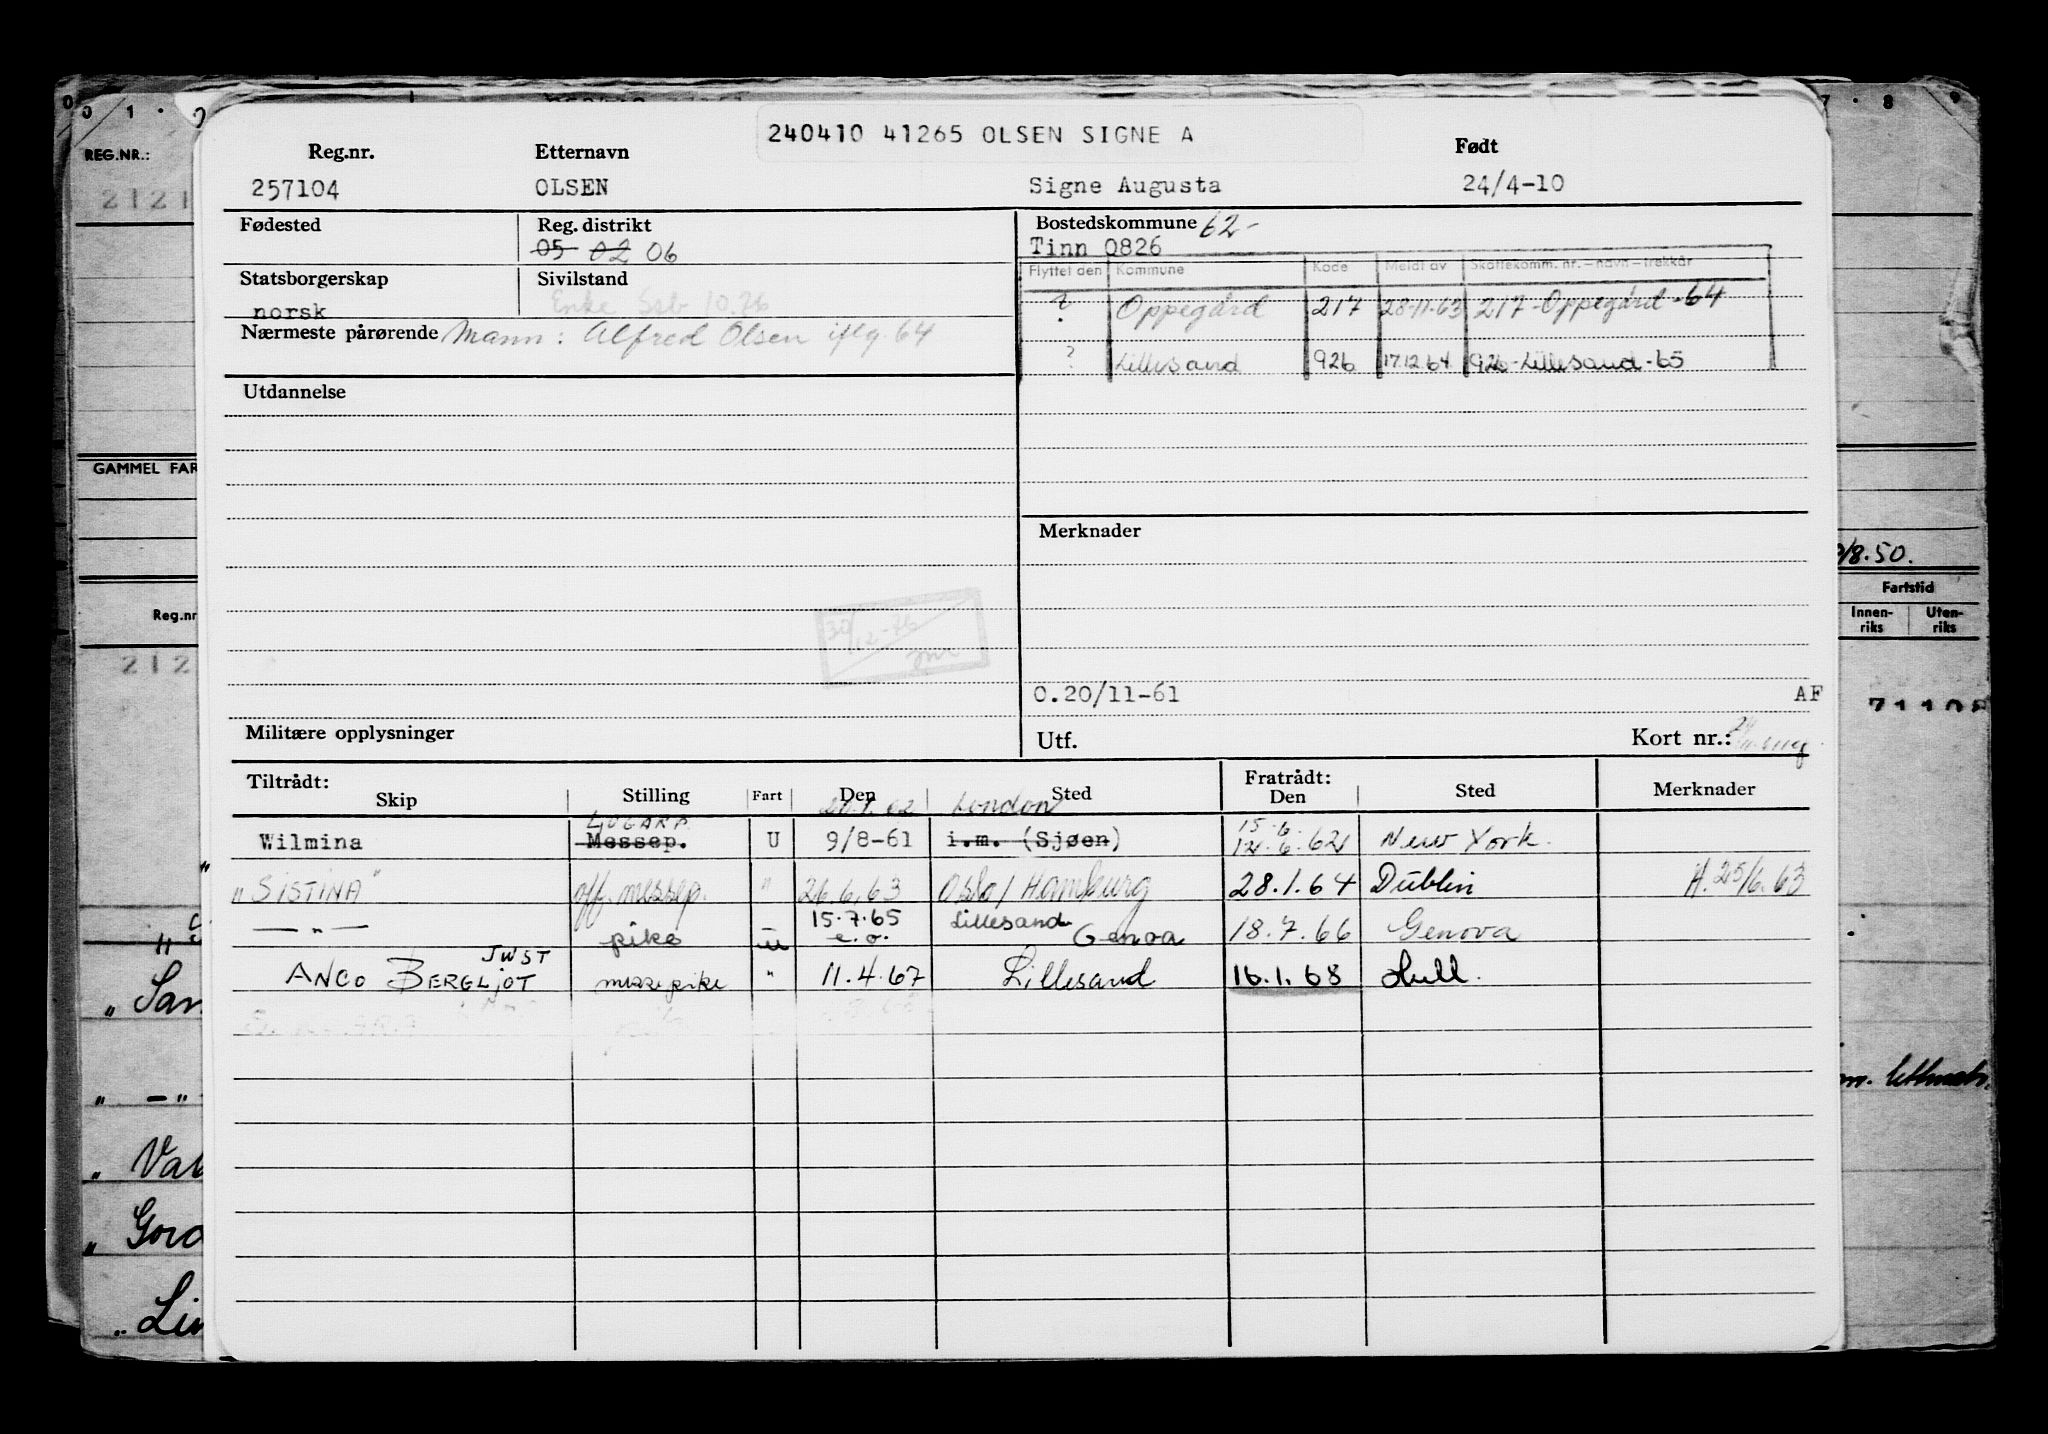 240410 41265 OLSEN SIGNE A
Reg.nr. Etternavn Født
257104 OLSEN Signe Augusta 24/4-10
Fødested Reg. distrikt Bostedskommune 62-
05 02 06 Tinn 0826
Statsborgerskap Sivilstand Flyttet den Kommune Kode Meldt av Skattekomm. nr. – navn – trekkår
norsk Enke Ssb 10.76 ? Oppegård 217 28-11-63 217-Oppegård-64
Nærmeste pårørende Mann: Alfred Olsen iflg. 64
? Lillesand 926 17.12.64 926-Lillesand-65
Utdannelse
Merknader
30/12-76
O.20/11-61 AF
Militære opplysninger Utf. Kort nr.:
Tiltrådt: Fratrådt:
Skip Stilling Fart Den Sted Den Sted Merknader
London
Wilmina Messep. U 9/8-61 i.m. (Sjøen) 15.6.62 New York.
"SISTINA" off. messep. " 26.6.63 Oslo/Hamburg 28.1.64 Dublin A.25/6.63
— " — pike 15.7.65 e.o. Lillesand Genoa 18.7.66 Genova
JWST
ANCO BERGLJOT messepike " 11.4.67 Lillesand 16.1.68 Hull.
REG.NR.:
GAMMEL FAR
Reg.nr
/8.50.
Fartstid
Innen-riks Uten-riks
" San
" — "
" Val
" Gord